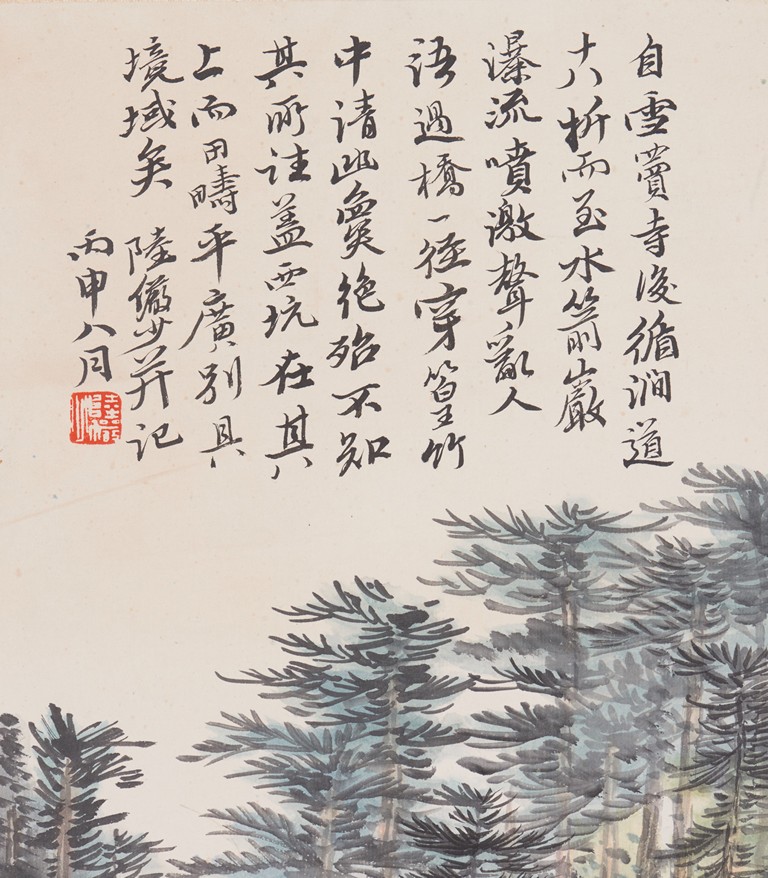 自雪竇寺後循澗道
十八折而至水簾巖
瀑流噴激聲亂人
語過橋一徑穿篁竹
中清幽敻絕殆不知
其所往蓋西坑在其
上而田疇平廣別具
境域矣 陸儼少并記
丙申八月